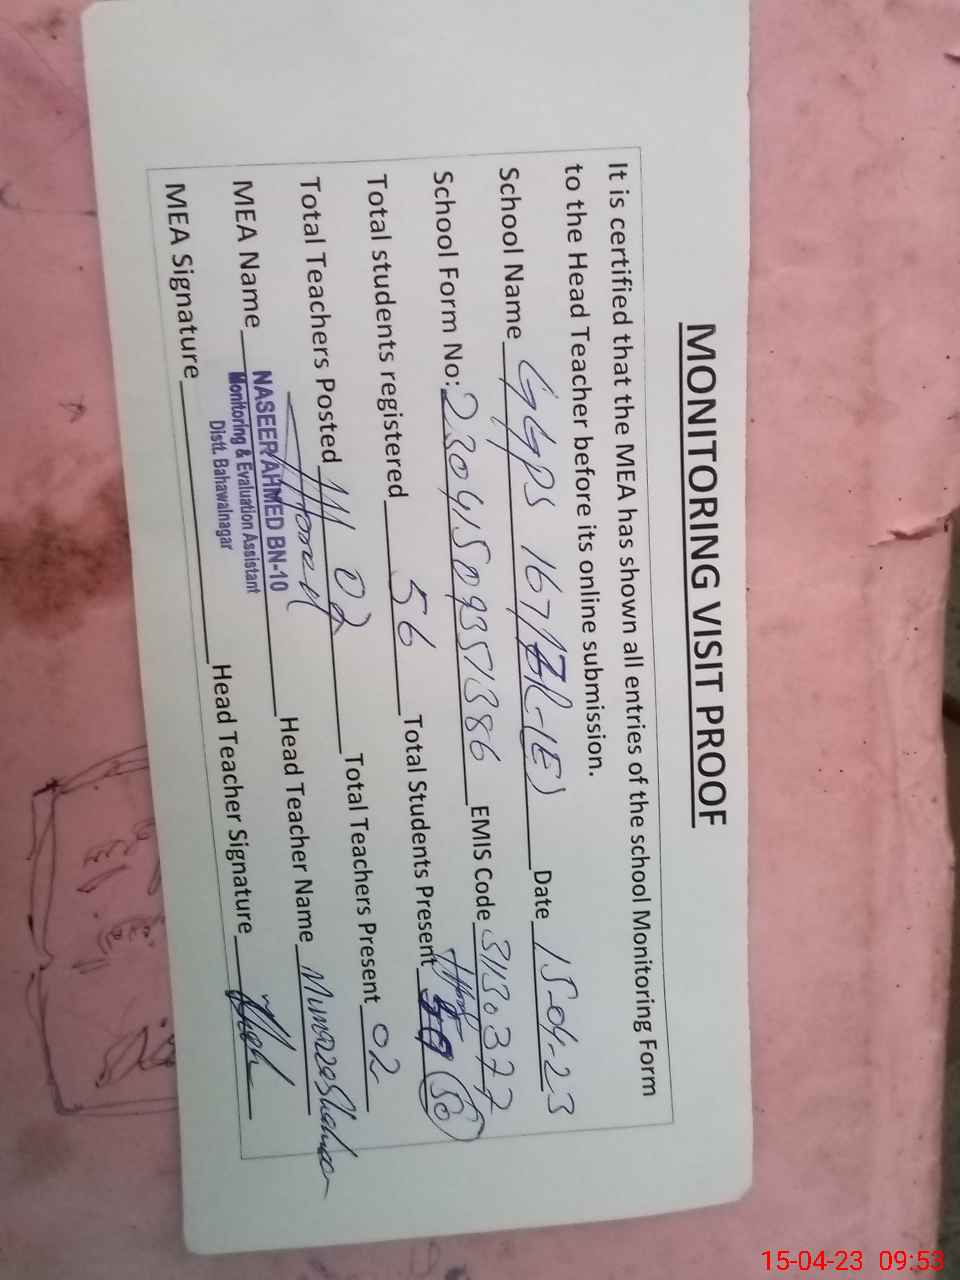 MONITORING VISIT PROOF
It is certified that the MEA has shown all entries of the school Monitoring Form
to the Head Teacher before its online submission.
School Name GGPS 167/7R-(E) Date 15-04-23
School Form No: 23041509351386 EMIS Code 31130377
Total students registered 56 Total Students Present 50
Total Teachers Posted 02 Total Teachers Present 02
MEA Name NASEER AHMED BN-10 Head Teacher Name
Monitoring & Evaluation Assistant
Distt. Bahawalnagar
MEA Signature Head Teacher Signature
15-04-23 09:53